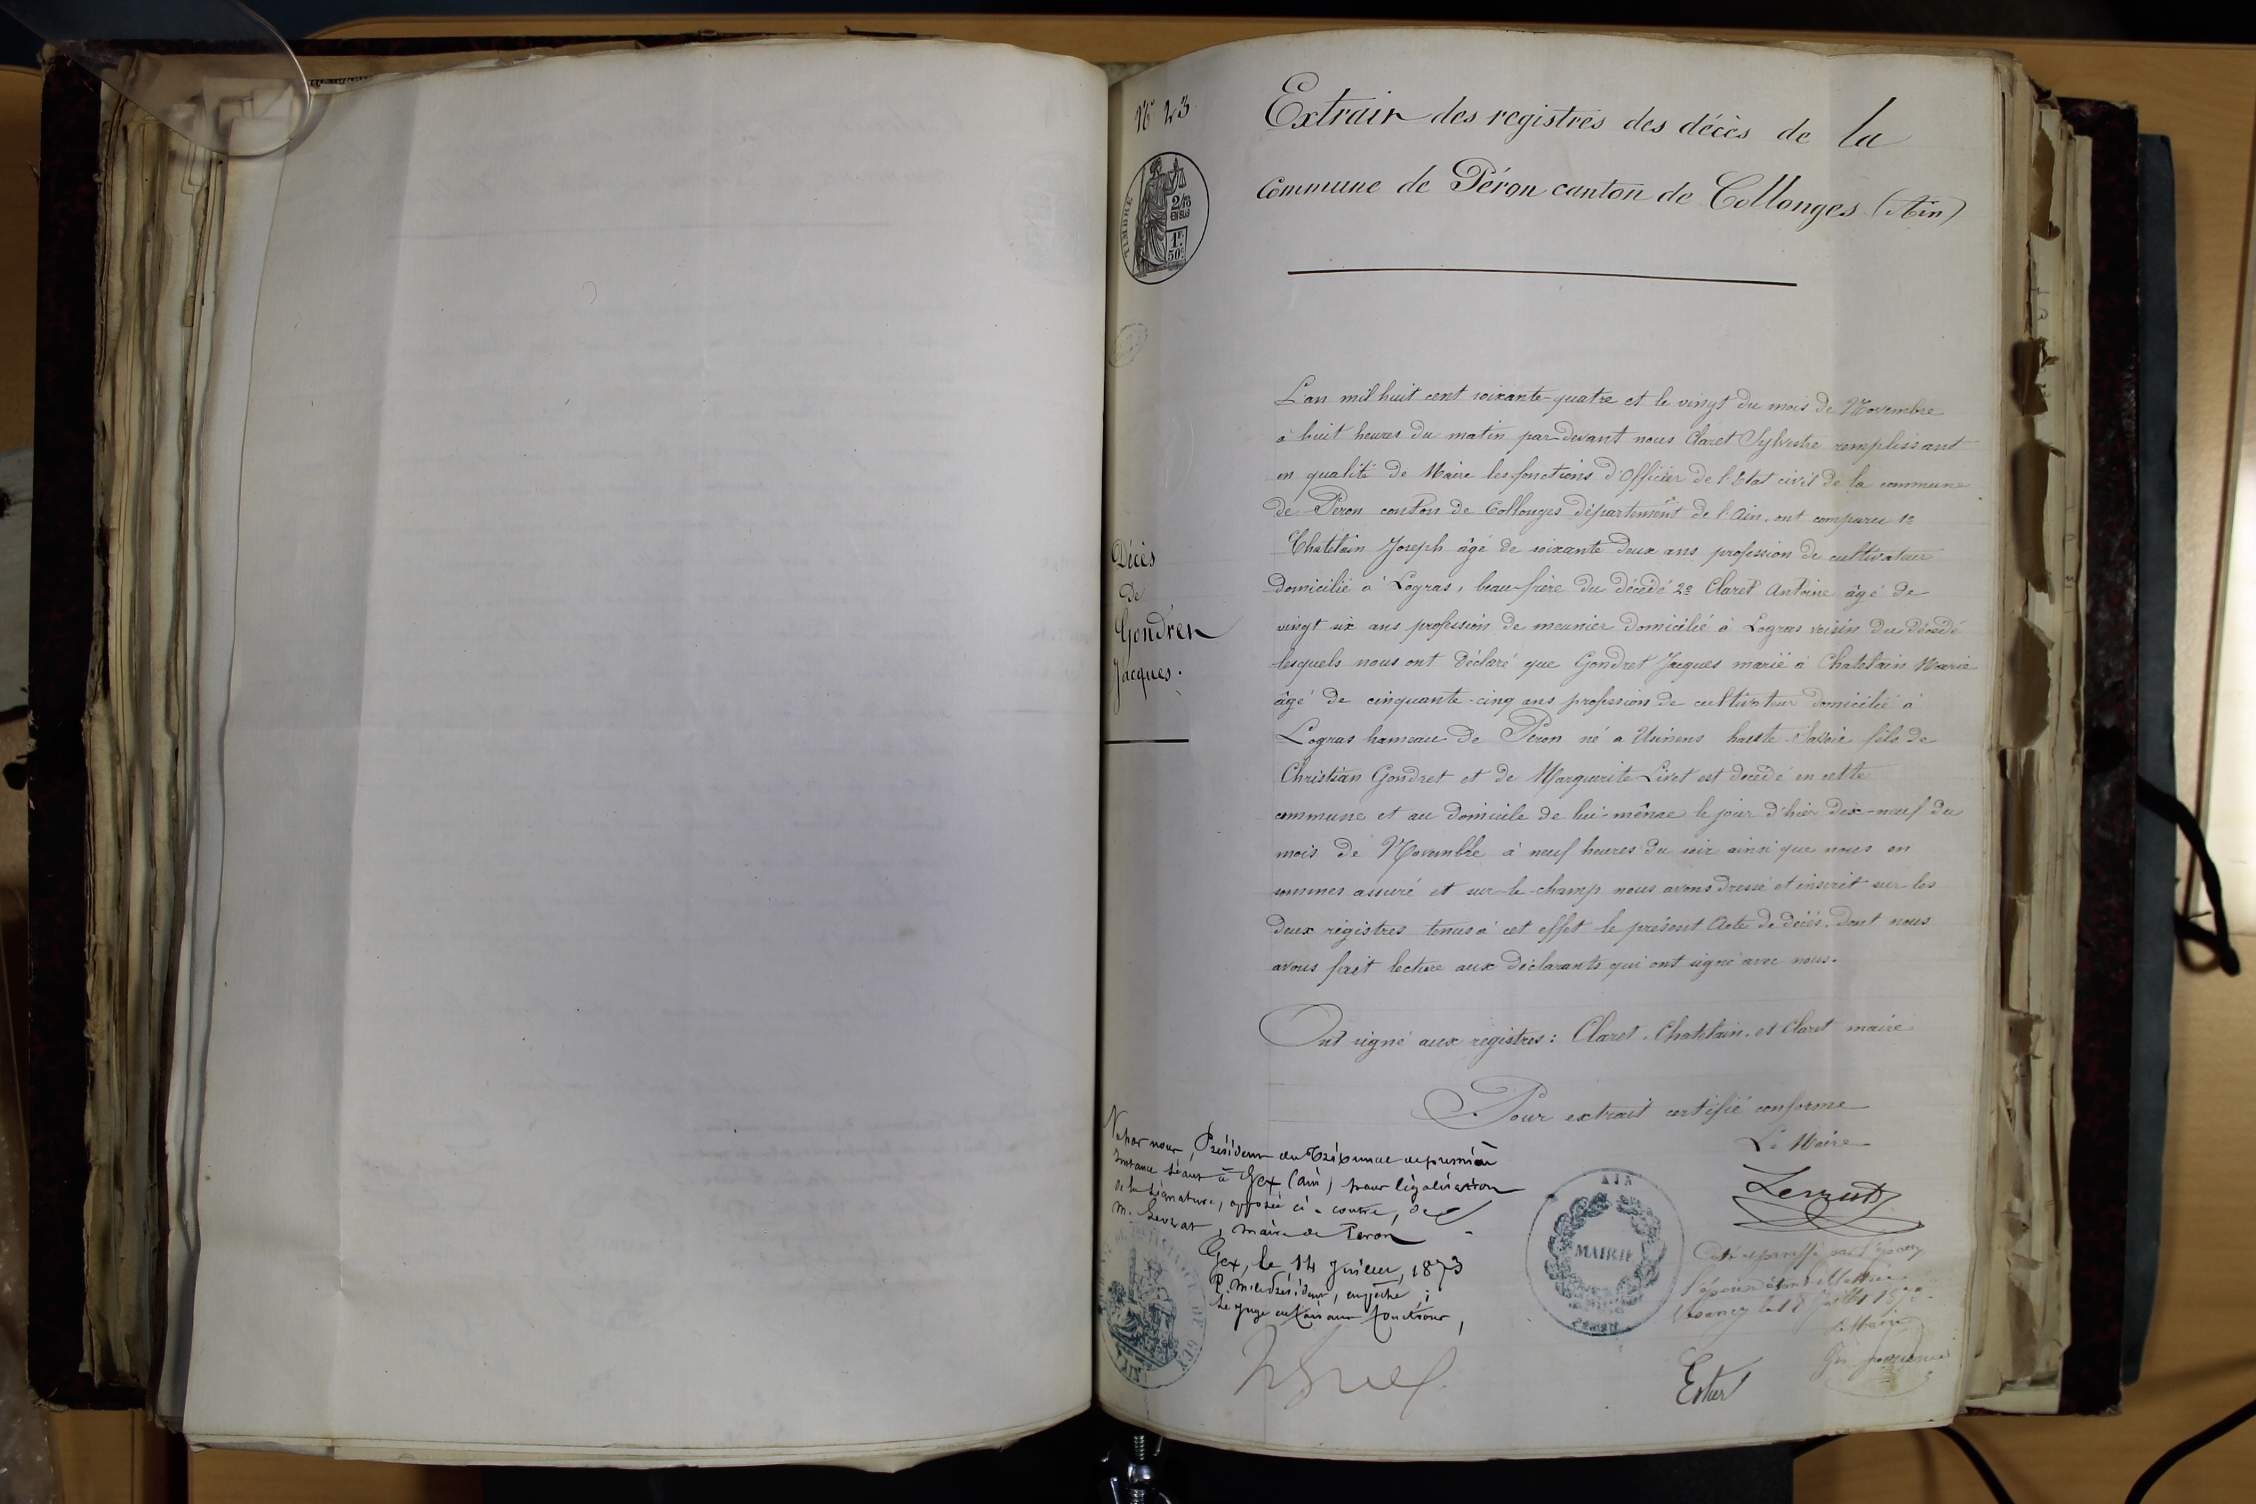 N° 23
Extrait des registres des décès de la
Commune de Péron canton de Collonges (Ain)
TIMBRE
2/10
EN SUS
1F.
50c.
L'an mil huit cent soixante-quatre et le vingt du mois de Novembre
à huit heures du matin par-devant nous Claret Sylvestre remplissant
en qualité de Maire les fonctions d'Officier de l'Etat civil de la commune
de Péron canton de Collonges département de l'Ain, ont comparu 1°
Chatelain Joseph âgé de soixante deux ans profession de cultivateur
domicilié à Logras, beau-frère du décédé 2e Claret Antoine âgé de
vingt six ans profession de meunier domicilié à Logras voisin du décédé
lesquels nous ont déclaré que Gondret Jacques marié à Chatelain Marie
âgé de cinquante-cinq ans profession de cultivateur domicilié à
Logras hameau de Péron né a Usinens haute Savoie fils de
Christian Gondret et de Marguerite Livet est decedé en cette
commune et au domicile de lui-même le jour d'hier dix-neuf du
mois de Novembre à neuf heures du soir ainsi que nous en
sommes assuré et sur-le-champ nous avons dressé et inscrit sur les
deux registres tenus à cet effet le présent Acte de décès. dont nous
avons fait lecture aux déclarants qui ont signé avec nous.
Décès
de
Gondret
Jacques.
Ont signé aux registres: Claret. Chatelain. et Claret maire
Pour extrait certifié conforme
Le Maire
Vu par nous, Président du Tribunal de première
instance séant à Gex (ain) pour légalisation
de la signature, apposée ci-contre, de
M. Levrat, maire de Peron
Gex, le 14 Juillet, 1873
P. M. le Président, empêché;
Le juge en faisant fonctions,
AIN
MAIRIE